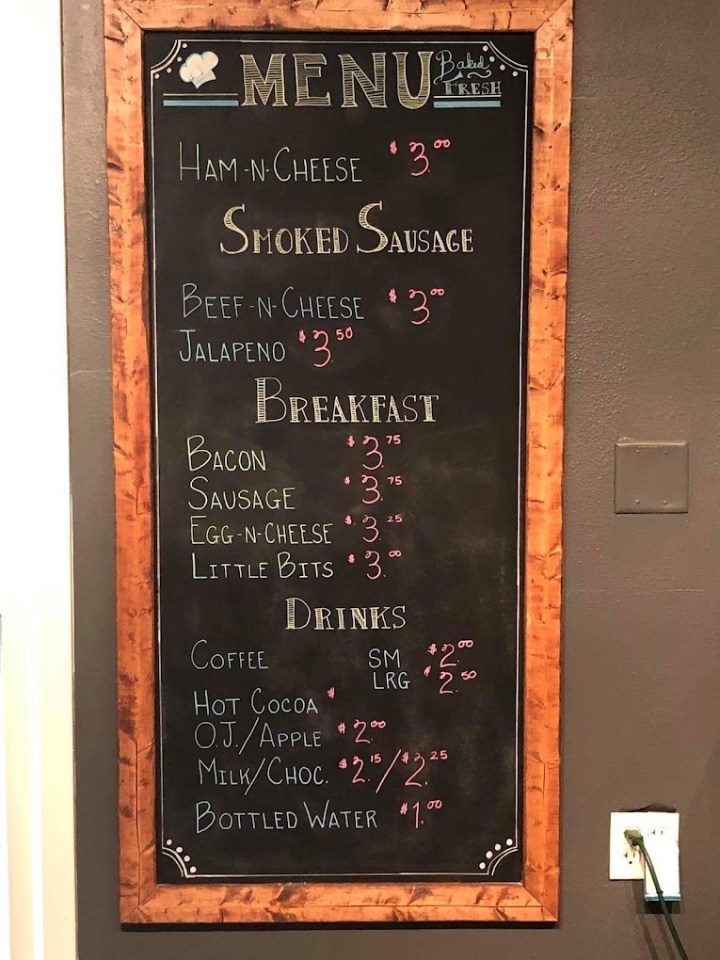 MENU Baked FRESH
HAM-N-CHEESE $3.00
SMOKED SAUSAGE
BEEF-N-CHEESE $3.00
JALAPENO $3.50
BREAKFAST
BACON $3.75
SAUSAGE $3.75
EGG-N-CHEESE $3.25
LITTLE BITS $3.00
DRINKS
COFFEE SM $2.00
LRG $2.50
HOT COCOA $
O.J./APPLE $2.00
MILK/CHOC. $2.15/$2.25
BOTTLED WATER $1.00